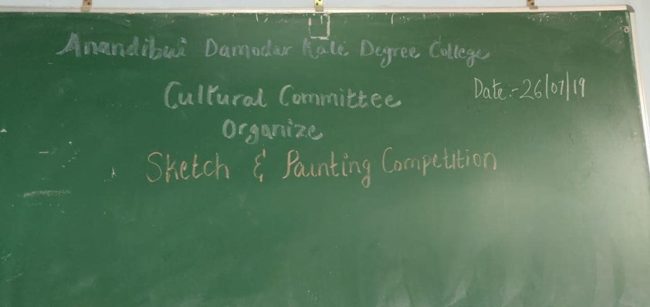 Anandibai Damodar Kale Degree College
Cultural Committee
Date:- 26/07/19
Organize
Sketch & Painting Competition